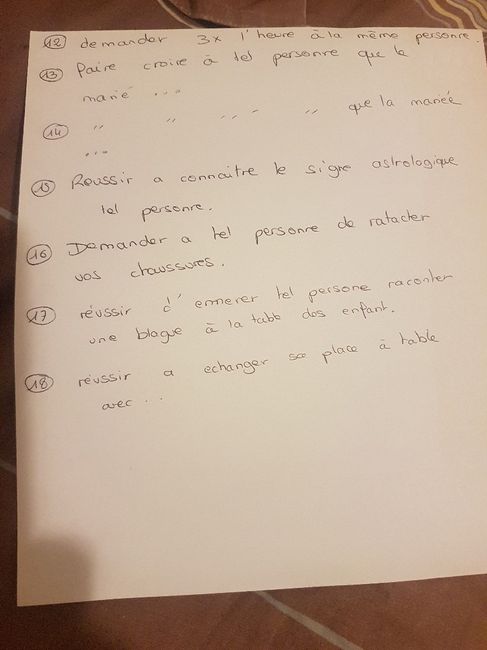 12 demander 3x l'heure à la même personne.
13 Faire croire à tel personne que le
marié ...
14 " " " " que la mariée
...
15 Réussir a connaitre le signe astrologique
tel personne.
16 Demander a tel personne de ratacter
vos chaussures.
17 réussir d'emmerer tel persone raconter
une blague à la table des enfant.
18 réussir a echanger sa place à table
avec ..